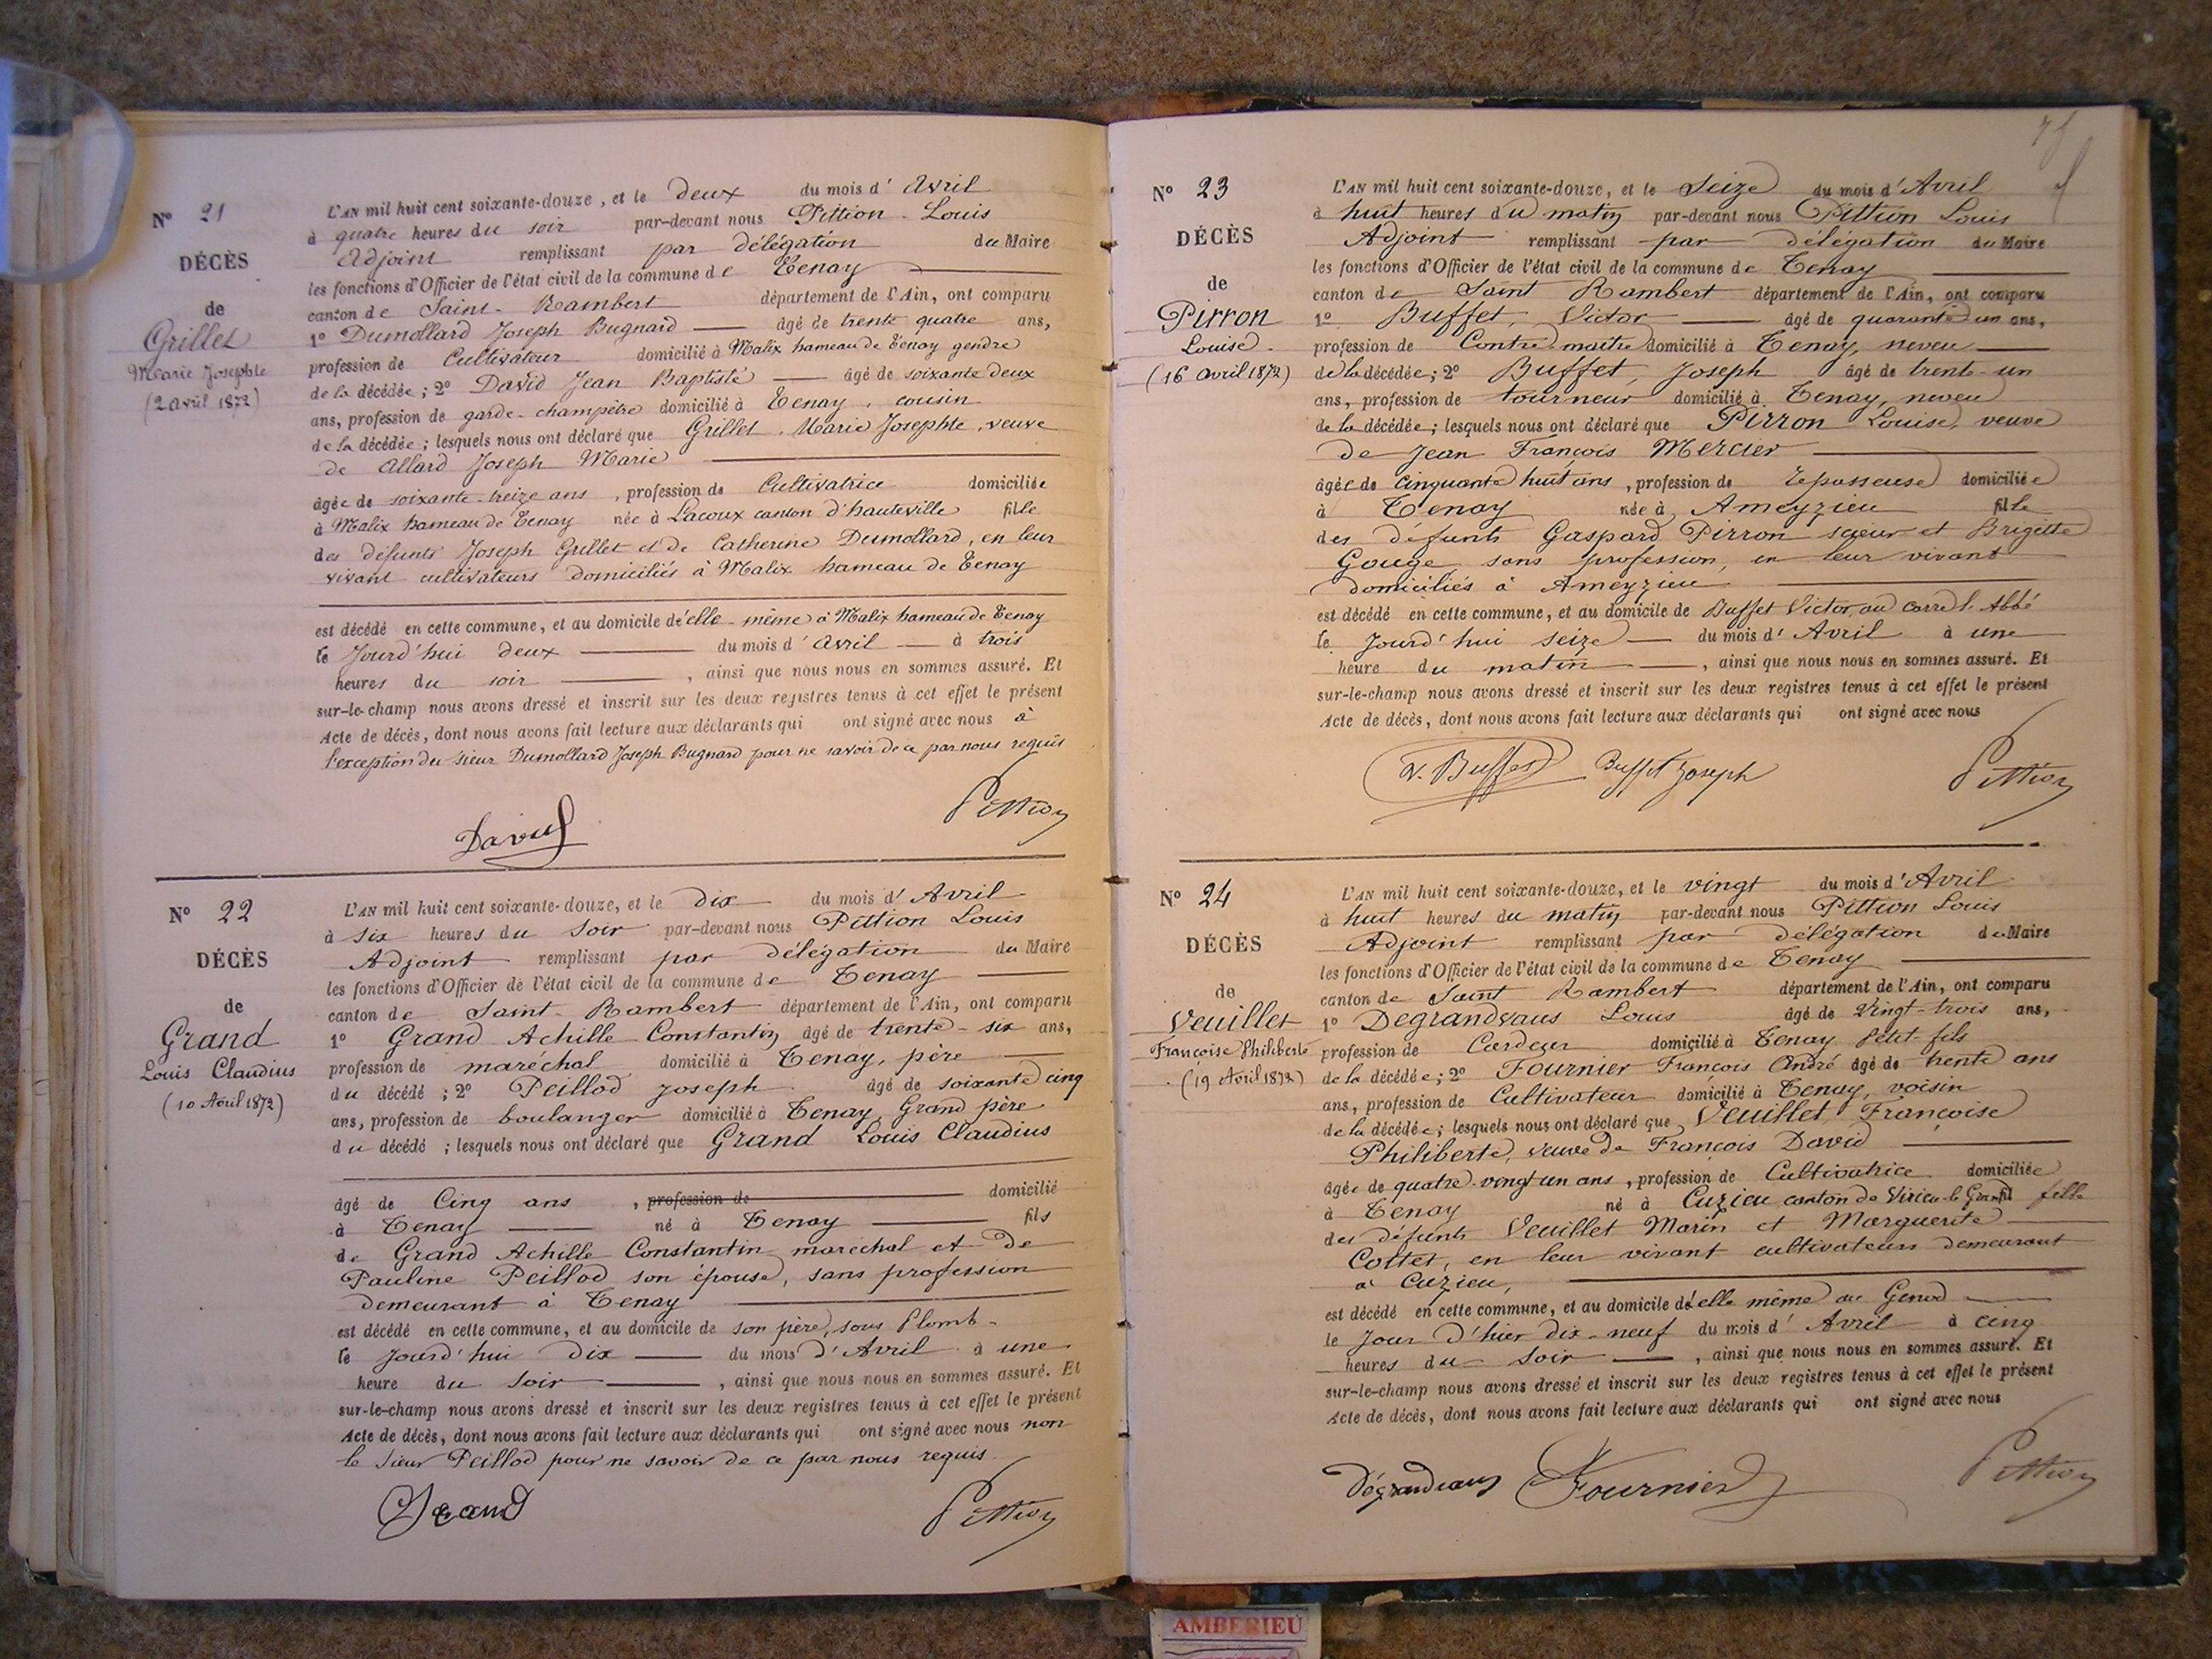 N° 21
DÉCÈS
de
Grillet
Marie Josephte
(2 avril 1872)
L'AN mil huit cent soixante-douze, et le deux du mois d'Avril
à quatre heures du soir par-devant nous Pittion Louis
Adjoint remplissant par délégation du Maire
les fonctions d'Officier de l'état civil de la commune de Tenay
canton de Saint-Rambert département de l'Ain, ont comparu
1° Dumollard Joseph Bugnard âgé de trente quatre ans,
profession de Cultivateur domicilié à Malix hameau de Tenay gendre
de la décédée; 2° David Jean Baptiste âgé de soixante deux
ans, profession de garde-champêtre domicilié à Tenay, cousin
de la décédée; lesquels nous ont déclaré que Grillet Marie Josephte, veuve
de Allard Joseph Marie
âgée de soixante-treize ans, profession de Cultivatrice domiciliée
à Malix hameau de Tenay née à Lacoux canton d'hauteville fille
des défunts Joseph Grillet et de Catherine Dumollard, en leur
vivant cultivateurs domiciliés à Malix hameau de Tenay
est décédé en cette commune, et au domicile d'elle-même à Malix hameau de Tenay
le jourd'hui deux du mois d'avril à trois
heures du soir, ainsi que nous nous en sommes assuré. Et
sur-le-champ nous avons dressé et inscrit sur les deux registres tenus à cet effet le présent
Acte de décès, dont nous avons fait lecture aux déclarants qui ont signé avec nous à
l'exception du sieur Dumollard Joseph Bugnard pour ne savoir de ce par nous requis
Pittion
David
N° 22
DÉCÈS
de
Grand
Louis Claudius
(10 Avril 1872)
L'AN mil huit cent soixante-douze, et le dix du mois d'Avril
à six heures du soir par-devant nous Pittion Louis
Adjoint remplissant par délégation du Maire
les fonctions d'Officier de l'état civil de la commune de Tenay
canton de Saint-Rambert département de l'Ain, ont comparu
1° Grand Achille Constantin âgé de trente-six ans,
profession de maréchal domicilié à Tenay, père
du décédé; 2° Peillod Joseph âgé de soixante cinq
ans, profession de boulanger domicilié à Tenay, Grand père
du décédé; lesquels nous ont déclaré que Grand Louis Claudius
âgé de Cinq ans, profession de domicilié
à Tenay né à Tenay fils
de Grand Achille Constantin maréchal et de
Pauline Peillod son épouse, sans profession
demeurant à Tenay
est décédé en cette commune, et au domicile de son père, sous Plomb
le jourd'hui dix du mois d'Avril à une
heure du soir, ainsi que nous nous en sommes assuré. Et
sur-le-champ nous avons dressé et inscrit sur les deux registres tenus à cet effet le présent
Acte de décès, dont nous avons fait lecture aux déclarants qui ont signé avec nous non
le sieur Peillod pour ne savoir de ce par nous requis.
Grand Pittion
N° 23
DÉCÈS
de
Pirron
Louise
(16 avril 1872)
L'AN mil huit cent soixante-douze, et le Seize du mois d'Avril
à huit heures du matin par-devant nous Pittion Louis
Adjoint remplissant par délégation du Maire
les fonctions d'Officier de l'état civil de la commune de Tenay
canton de Saint Rambert département de l'Ain, ont comparu
1° Buffet, Victor âgé de quarante un ans,
profession de Contre-maitre domicilié à Tenay, neveu
de la décédée; 2° Buffet, Joseph âgé de trente-un
ans, profession de tourneur domicilié à Tenay, neveu
de la décédée; lesquels nous ont déclaré que Pirron Louise, veuve
de Jean François Mercier
âgée de Cinquante huit ans, profession de repasseuse domiciliée
à Tenay née à Ameyzieu fille
des défunts Gaspard Pirron scieur et Brigitte
Gouge sans profession, en leur vivant
domiciliés à Ameyzieu
est décédé en cette commune, et au domicile de Buffet Victor, au carre l'Abbé
le jourd'hui seize du mois d'Avril à une
heure du matin, ainsi que nous nous en sommes assuré. Et
sur-le-champ nous avons dressé et inscrit sur les deux registres tenus à cet effet le présent
Acte de décès, dont nous avons fait lecture aux déclarants qui ont signé avec nous
V. Buffet Buffet Joseph Pittion
N° 24
DÉCÈS
de
Veuillet
Françoise Philiberte
(19 Avril 1872)
L'AN mil huit cent soixante-douze, et le vingt du mois d'Avril
à huit heures du matin par-devant nous Pittion Louis
Adjoint remplissant par délégation du Maire
les fonctions d'Officier de l'état civil de la commune de Tenay
canton de Saint Rambert département de l'Ain, ont comparu
1° Degrandvaus Louis âgé de Vingt-trois ans,
profession de Cardeur domicilié à Tenay Petit-fils
de la décédée; 2° Fournier François André âgé de trente ans
ans, profession de Cultivateur domicilié à Tenay, voisin
de la décédée; lesquels nous ont déclaré que Veuillet Françoise
Philiberte, veuve de François David
âgée de quatre-vingt un ans, profession de Cultivatrice domiciliée
à Tenay né à Cuzieu canton de Virieu-le-Grand fille
des défunts Veuillet Marin et Marguerite
Cottet, en leur vivant cultivateurs demeurant
à Cuzieu,
est décédé en cette commune, et au domicile d'elle même au Genod
le jour d'hier dix-neuf du mois d'Avril à cinq
heures du soir, ainsi que nous nous en sommes assuré. Et
sur-le-champ nous avons dressé et inscrit sur les deux registres tenus à cet effet le présent
Acte de décès, dont nous avons fait lecture aux déclarants qui ont signé avec nous
Dégrandvaus Fournier Pittion
AMBERIEU